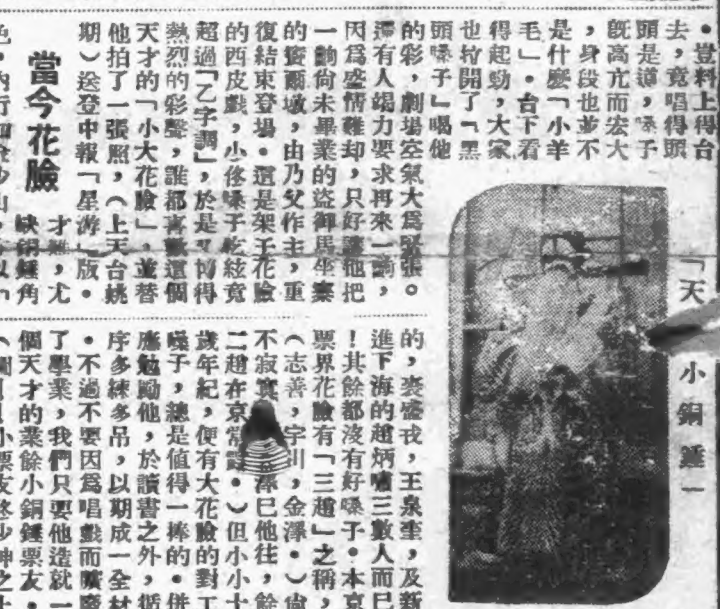 「天 小銅錘」
・豈料上得台
去，竟唱得頭
頭是道，嗓子
旣高亢而宏大
，身段也並不
是什麼「小羊
毛」・台下看
得起勁，大家
也拉開了「黑
頭嗓子」喝他
的彩，劇場空氣大爲緊張。
還有人竭力要求再來一齣，
因爲盛情難却，只好讓他把
一齣尚未畢業的盜御馬坐寨
的竇爾墩，由乃父作主，重
復結束登場。還是架子花臉
的西皮戲，少俢嗓子乾絃竟
超過「乙字調」，於是又博得
熱烈的彩聲，誰都喜歡這個
天才的「小大花臉」，並替
他拍了一張照，（上天台姚
期）送登申報「星游」版・
當今花臉
才難，尤
缺銅錘角
色，內行如金少山，
的，裘盛戎，王泉奎，及新
進下海的趙炳嘯三數人而已
！其餘都沒有好嗓子・本京
票界花臉有「三趙」之稱，
（志善，宇川，金澤・）尙
不寂寞 澤已他往，餘
二趙在京常 ・）但小小十
歲年紀，便有大花臉的對工
嗓子，總是值得一捧的・併
應勉勵他，於讀書之外，循
序多練多吊，以期成一全材
・不過不要因爲唱戲而曠廢
了學業，我們只要他造就一
個天才的業餘小銅錘票友・
小票友